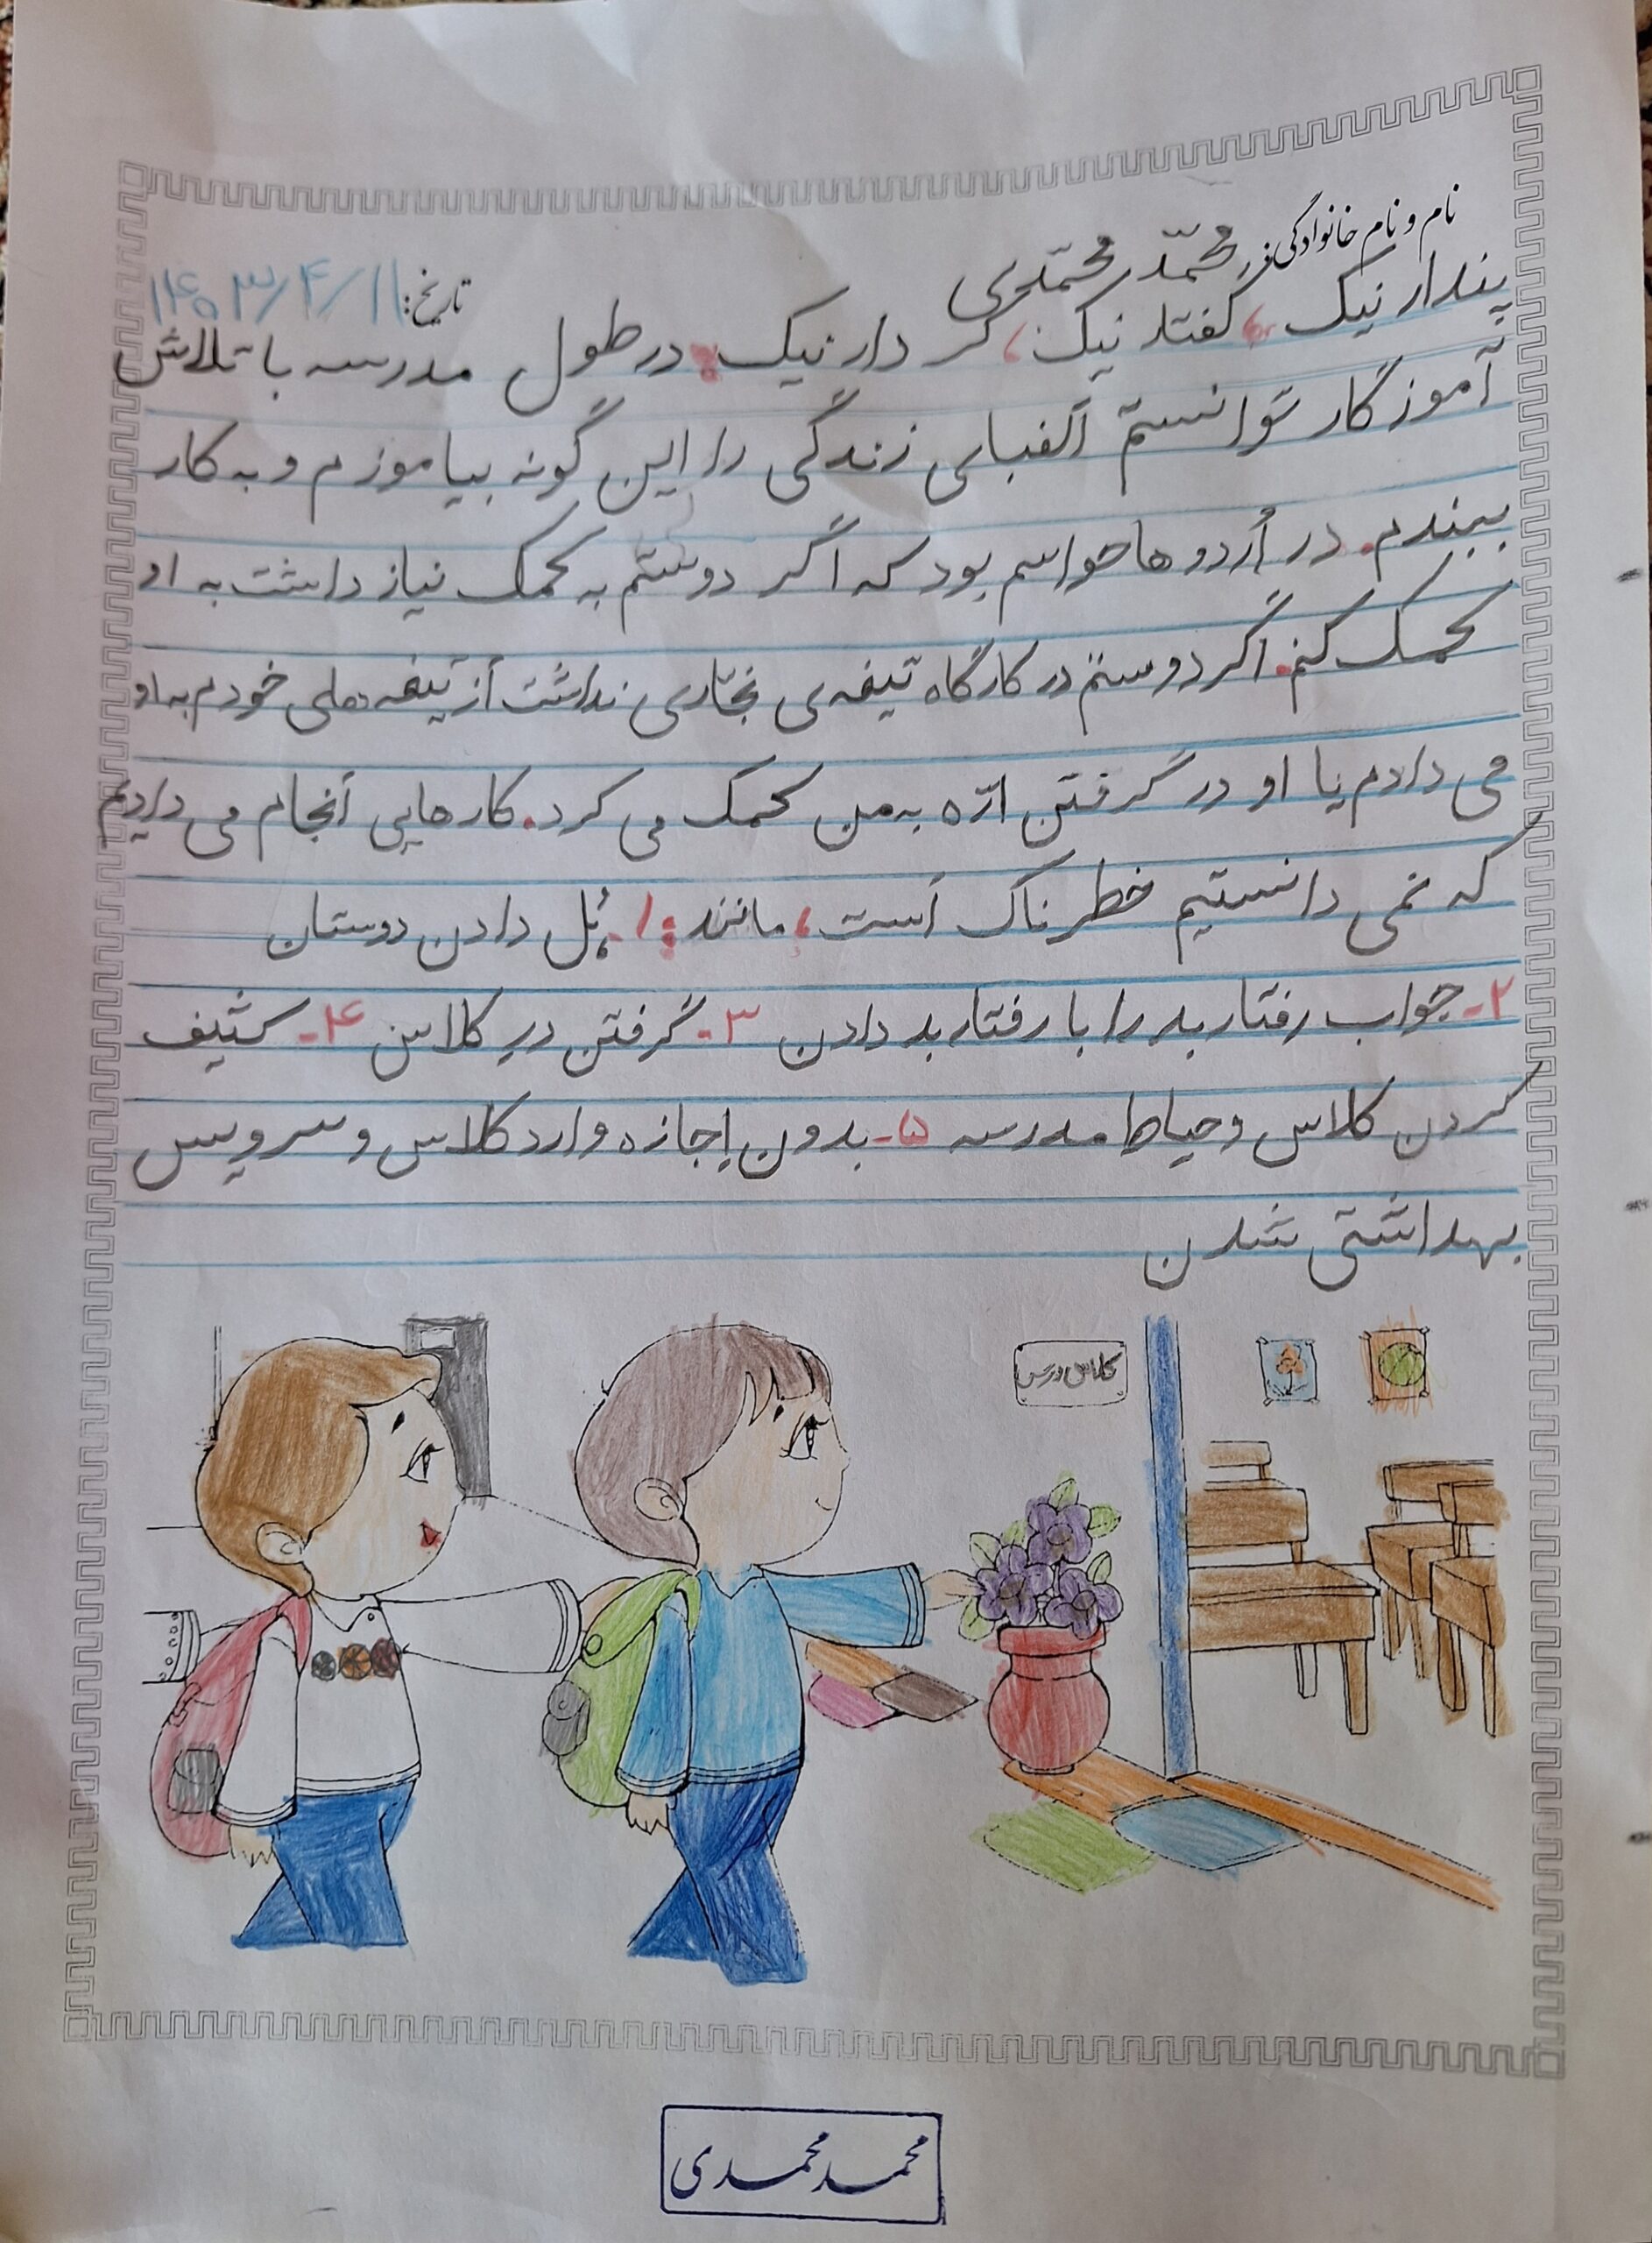 نام و نام خانوادگی: محمّد محمّدی
تاریخ: ۱۴۰۳/۴/۱۱
پندار نیک، گفتار نیک، کردار نیک: در طول مدرسه با تلاش
آموزگار توانستم اَلفبای زندگی را این گونه بیاموزم و به کار
ببندم. در اُردوها حواسم بود که اگر دوستم به کمک نیاز داشت به او
کمک کنم. اگر دوستم در کارگاه تیغه‌ی نجّاری نداشت اَز تیغه‌های خودم به او
می دادم یا او در گرفتن ارّه به من کمک می کرد. کارهایی اَنجام می دادیم
که نمی دانستیم خطرناک اَست، مانند: ۱. هُل دادن دوستان
۲- جواب رفتار بد را با رفتار بد دادن ۳- گرفتن درِ کلاس ۴- کثیف
کردن کلاس و حیاط مدرسه ۵- بدون اِجازه وارد کلاس و سرویس
بهداشتی شدن
کلاس درس
محمد محمدی